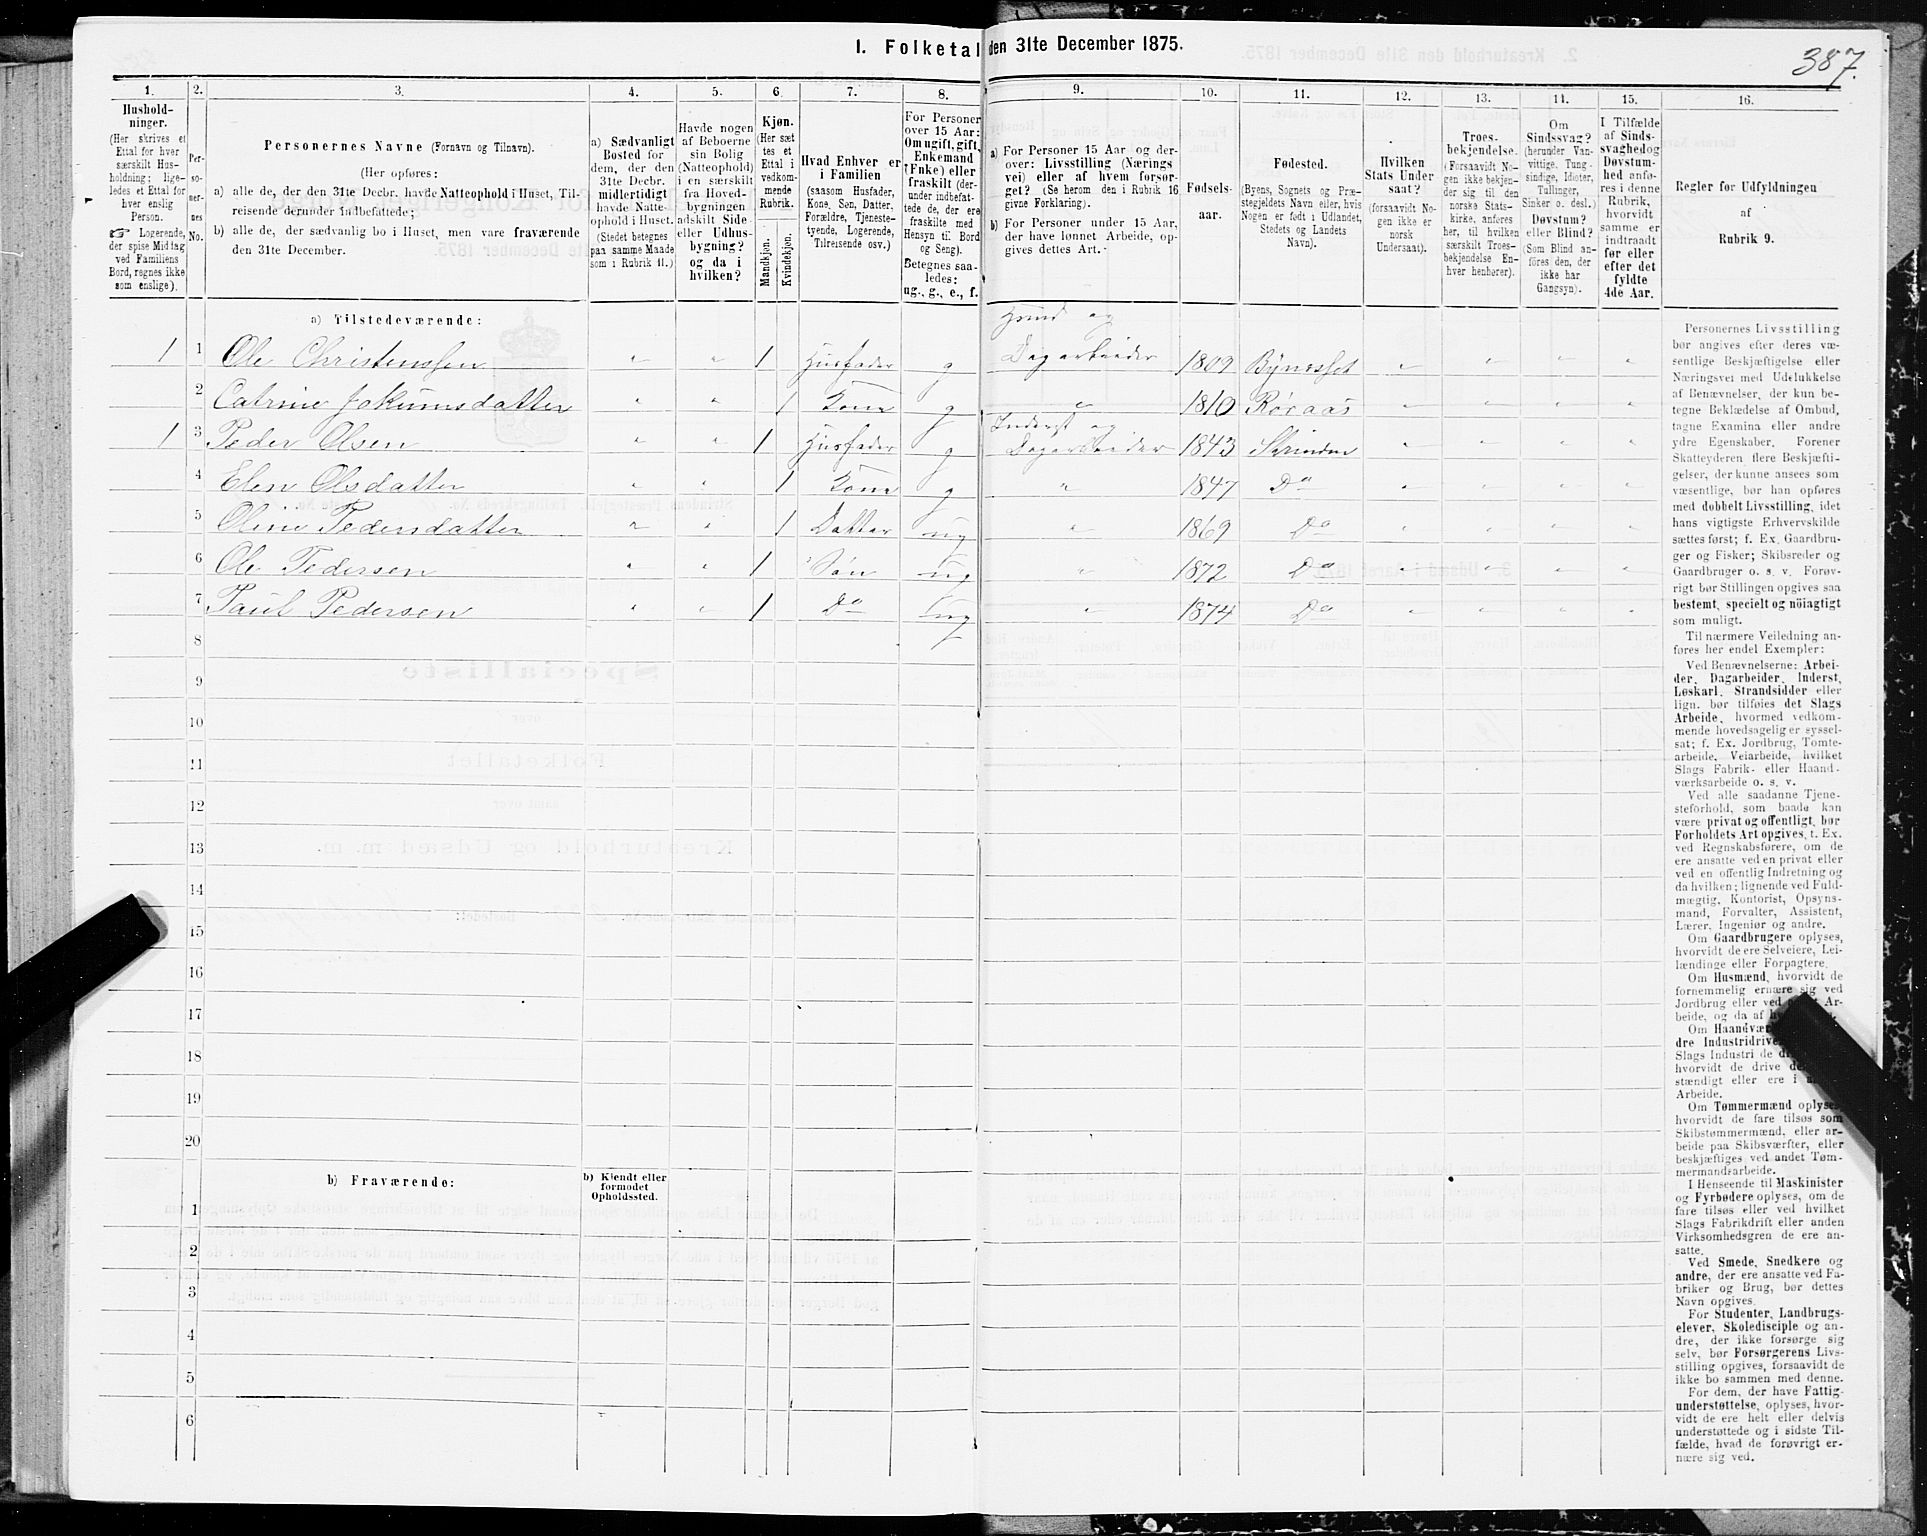 1. Folketal den 31te December 1875.
387.
1. 2. 3. 4. 5. 6. 7. 8. 9. 10. 11. 12. 13. 14. 15. 16.
Hushold-
ninger.
(Her skrives et
Ettal for hver
særskilt Hus-
holdning; lige-
ledes et Ettal for
hver enslig
Person.
☞ Logerende,
der spise Middag
ved Familiens
Bord, regnes ikke
som enslige).
Per-
so-
ner-
nes
No.
Personernes Navne (Fornavn og Tilnavn).
(Her opføres:
a) alle de, der den 31te Decbr. havde Natteophold i Huset, Til-
reisende derunder indbefattede;
b) alle de, der sædvanlig bo i Huset, men vare fraværende
den 31te December.
a) Sædvanligt
Bosted for
dem, der den
31te Decbr.
midlertidigt
havde Natte-
ophold i Huset.
(Stedet betegnes
paa samme Maade
som i Rubrik 11.)
Havde nogen
af Beboerne
sin Bolig
(Natteophold)
i en særskilt
fra Hoved-
bygningen
adskilt Side-
eller Udhus-
bygning?
og da i
hvilken?
Kjøn.
(Her sæt-
tes et
Ettal i
vedkom-
mende
Rubrik.
Mandkjøn.
Kvindekjøn.
Hvad Enhver er
i Familien
(saasom Husfader,
Kone, Søn, Datter,
Forældre, Tjeneste-
tyende, Logerende,
Tilreisende osv.)
For Personer
over 15 Aar:
Om ugift, gift,
Enkemand
(Enke) eller
fraskilt (der-
under indbefat-
tede de, der ere
fraskilte med
Hensyn til Bord
og Seng).
Betegnes saa-
ledes:
ug., g., e., f.
a) For Personer 15 Aar og der-
over: Livsstilling (Nærings-
vei) eller af hvem forsør-
get? (Se herom den i Rubrik 16
givne Forklaring).
b) For Personer under 15 Aar,
der have lønnet Arbeide, op-
gives dettes Art.
Fødsels-
aar.
Fødested.
(Byens, Sognets og Præ-
stegjeldets Navn eller, hvis
Nogen er født i Udlandet,
Stedets og Landets
Navn).
Hvilken
Stats Under-
saat?
(forsaavidt No-
gen ikke er
norsk
Undersaat).
Troes-
bekjendelse.
(Forsaavidt No-
gen ikke bekjen-
der sig til den
norske Stats-
kirke, anføres
her, til hvilken
særskilt Troes-
bekjendelse En-
hver henhører).
Om
Sindssvag?
(herunder Van-
vittige, Tung-
sindige, Idioter,
Tullinger,
Sinker o. desl.)
Døvstum?
eller Blind?
(Som Blind an-
føres den, der
ikke har
Gangsyn).
I Tilfælde
af Sinds-
svaghed og
Døvstum-
hed anfø-
res i denne
Rubrik,
hvorvidt
samme er
indtraadt
før eller
efter det
fyldte
4de Aar.
Regler for Udfyldningen
af
Rubrik 9.
a) Tilstedeværende:
1 1 Ole Christenssen " " 1 Husfader g Husmd og Dagarbeider 1809 Bynesset " " " "
2 Catrine Jokumsdatter " " 1 Kone g " 1810 Røraas " " " "
1 3 Peder Olsen " " 1 Husfader g Inderst og Dagarbeider 1843 Strinden " " " "
4 Elen Olsdatter " " 1 Kone g " 1847 Do " " " "
5 Oline Pedersdatter " " 1 Datter ug " 1869 Do " " " "
6 Ole Pedersen " " 1 Søn ug " 1872 Do " " " "
7 Paul Pedersen " " 1 Do ug " 1874 Do " " " "
8
9
10
11
12
13
14
15
16
17
18
19
20
b) Fraværende:
b) Kjendt eller
formodet
Opholdssted.
1
2
3
4
5
6
Personernes Livsstilling
bør angives efter deres væ-
sentlige Beskjæftigelse eller
Næringsvei med Udelukkelse
af Benævnelser, der kun be-
tegne Beklædelse af Ombud,
tagne Examina eller andre
ydre Egenskaber. Forener
Skatteyderen flere Beskjæfti-
gelser, der kunne ansees som
væsentlige, bør han opføres
med dobbelt Livsstilling, idet
hans vigtigste Erhvervskilde
sættes først; f. Ex. Gaardbru-
ger og Fisker; Skibsreder og
Gaardbruger o. s. v. Forøv-
rigt bør Stillingen opgives saa
bestemt, specielt og nöiagtigt
som muligt.
Til nærmere Veiledning an-
føres her endel Exempler:
Ved Benævnelserne: Arbei-
der, Dagarbeider, Inderst,
Løskarl, Strandsidder eller
lign. bør tilføies det Slags
Arbeide, hvormed vedkom-
mende hovedsagelig er syssel-
sat; f. Ex. Jordbrug, Tomte-
arbeide, Veiarbeide, hvilket
Slags Fabrik- eller Haand-
værksarbeide o. s. v.
Ved alle saadanne Tjene-
steforhold, som baade kan
være privat og offentligt, bør
Forholdets Art opgives, t. Ex.
ved Regnskabsførere, om de
ere ansatte ved en privat eller
ved en offentlig Indretning og
da hvilken; lignende ved Fuld-
mægtig, Kontorist, Opsyns-
mand, Forvalter, Assistent,
Lærer, Ingeniør og andre.
Om Gaardbrugere oplyses,
hvorvidt de ere Selveiere, Lei-
lændinge eller Forpagtere.
Om Husmænd, hvorvidt de
fornemmelig ernære sig ved
Jordbrug eller ved Ar-
beide, og da af
Om
dre
Slags Industri de
hvorvidt de drive
stændigt eller ere i
Arbeide.
Om Tømmermænd oplyses,
hvorvidt de fare tilsøs som
Skibstømmermænd, eller ar-
beide paa Skibsværfter, eller
beskjæftiges ved andet Tøm-
mermandsarbeide.
I Henseende til Maskinister
og Fyrbødere oplyses, om de
fare tilsøs eller ved hvilket
Slags Fabrikdrift eller anden
Virksomhedsgren de ere an-
satte.
Ved Smede, Snedkere og
andre, der ere ansatte ved Fa-
briker og Brug, bør dettes
Navn opgives.
For Studenter, Landbrugs-
elever, Skoledisciple og an-
dre, der ikke forsørge sig
selv, bør Forsørgerens Livs-
stilling opgives, forsaavidt de
ikke bo sammen med denne.
For dem, der have Fattig-
understøttelse, oplyses, hvor-
vidt de ere helt eller delvis
understøttede og i sidste Til-
fælde, hvad de forøvrigt er-
nære sig ved.